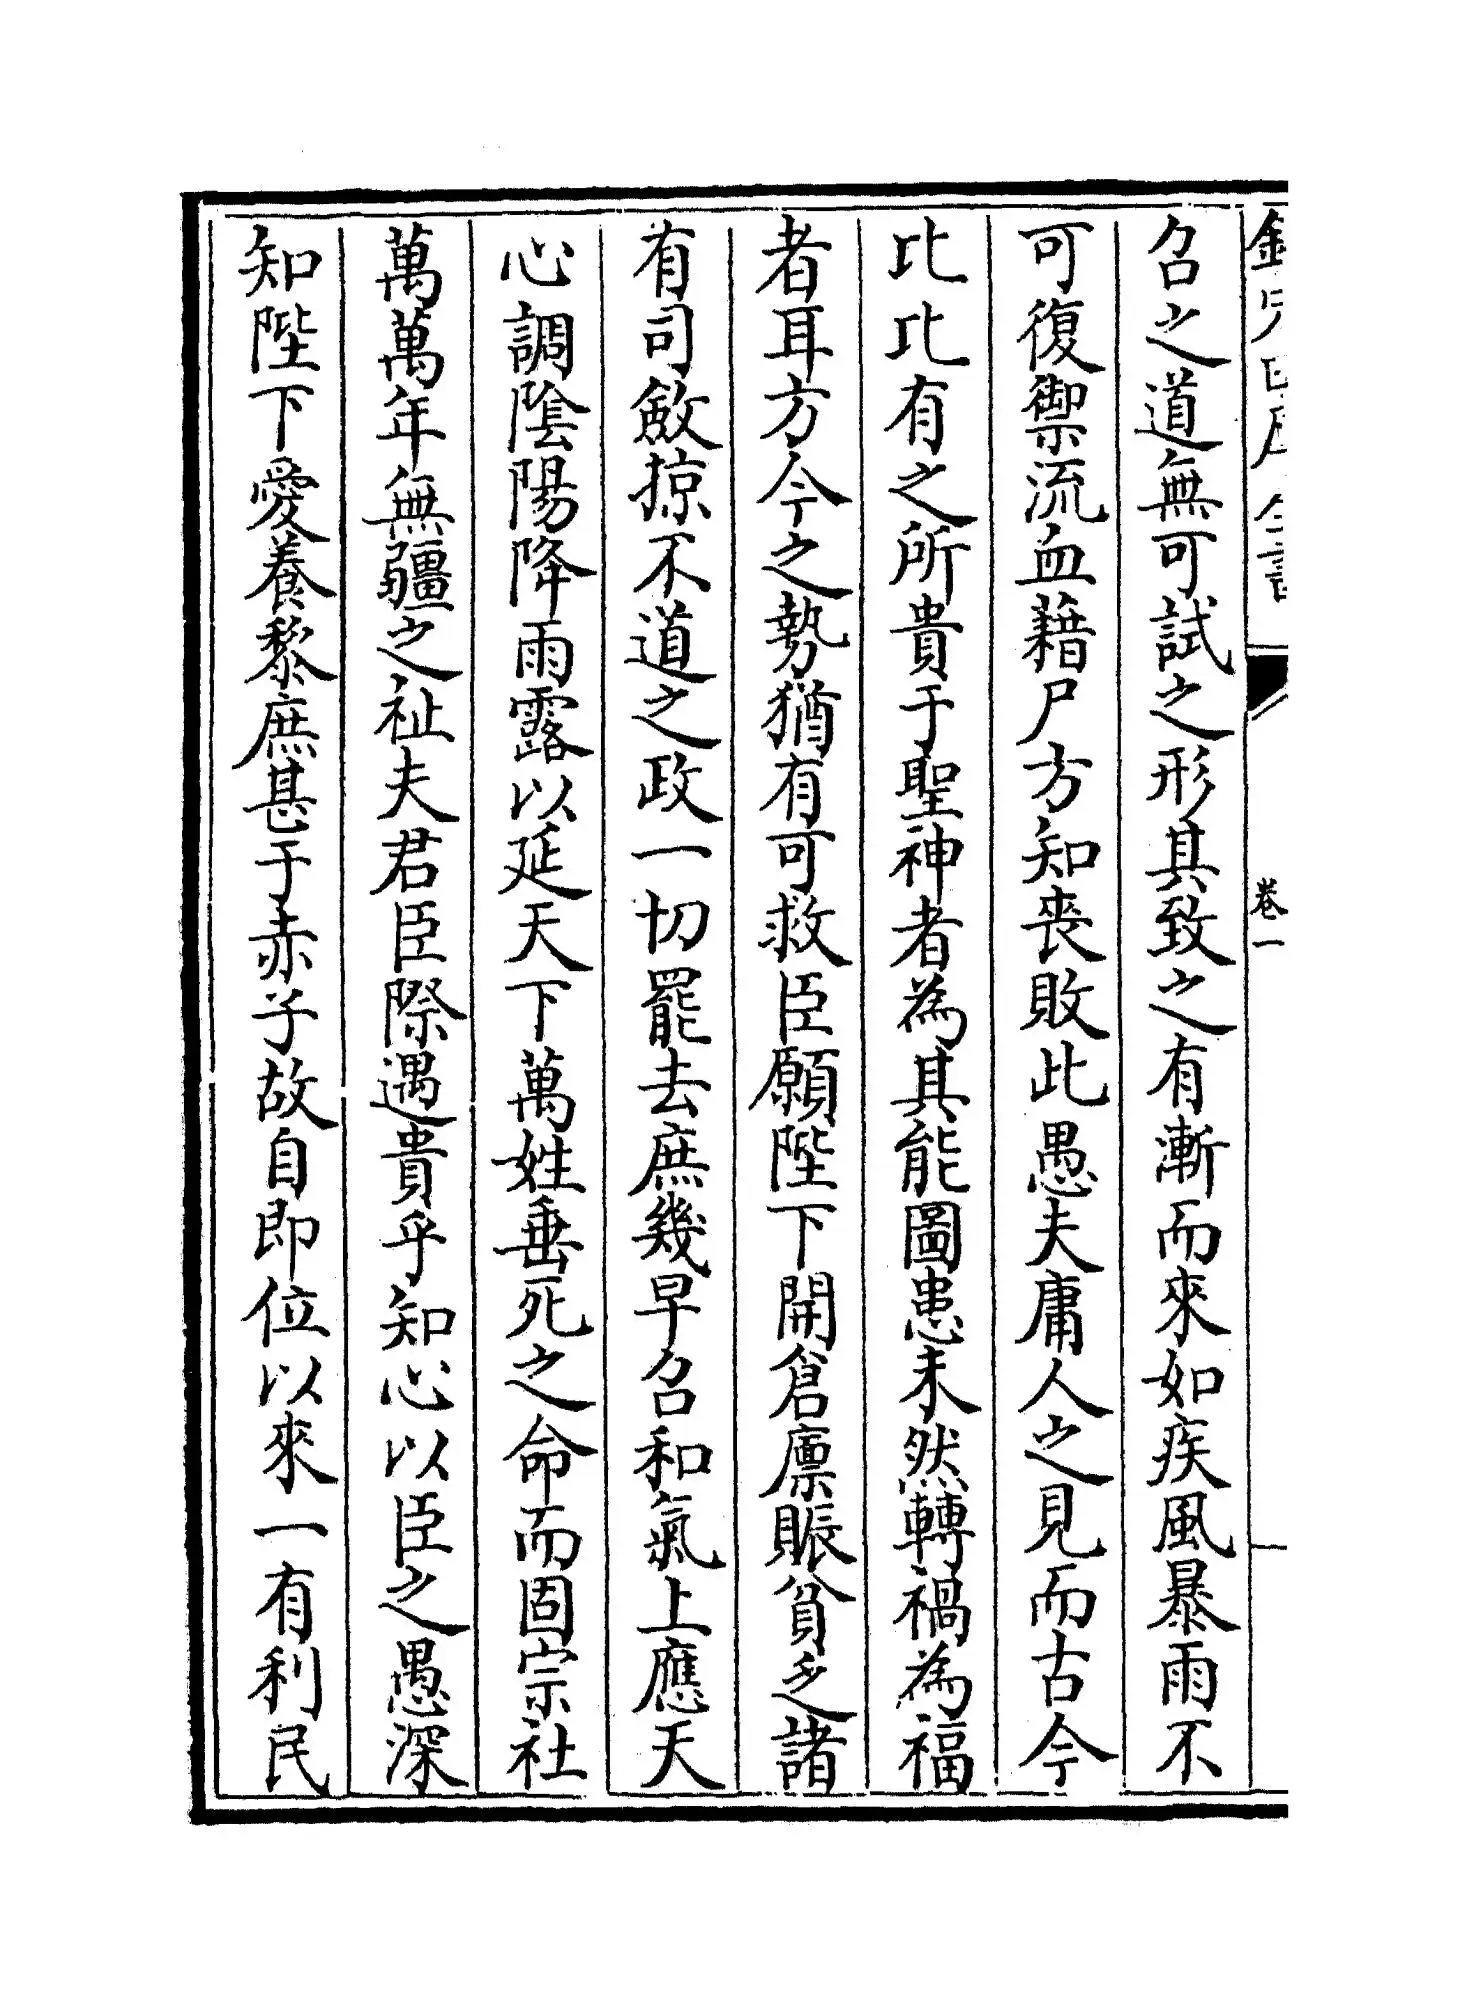 欽定四庫全書
卷一
召之道無可試之形其致之有漸而來如疾風暴雨不
可復禦流血藉尸方知喪敗此愚夫庸人之見而古今
比比有之所貴于聖神者為其能圖患未然轉禍為福
者耳方今之勢猶有可救臣願陛下開倉廪賑貧乏諸
有司斂掠不道之政一切罷去庶幾早召和氣上應天
心調隂陽降雨露以延天下萬姓垂死之命而固宗社
萬萬年無疆之祉夫君臣際遇貴乎知心以臣之愚深
知陛下愛養黎庶甚于赤子故自即位以來一有利民